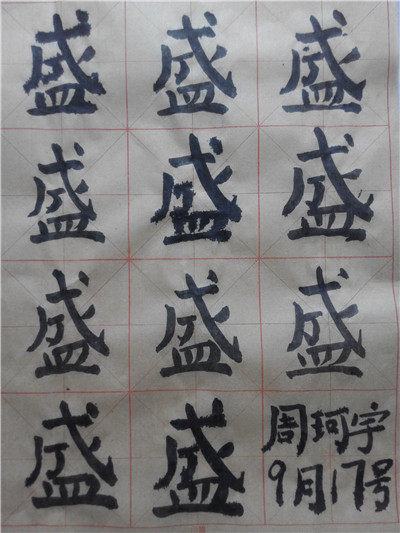 盛盛盛
盛盛盛
盛盛盛
盛盛
周珂宇
9月17号